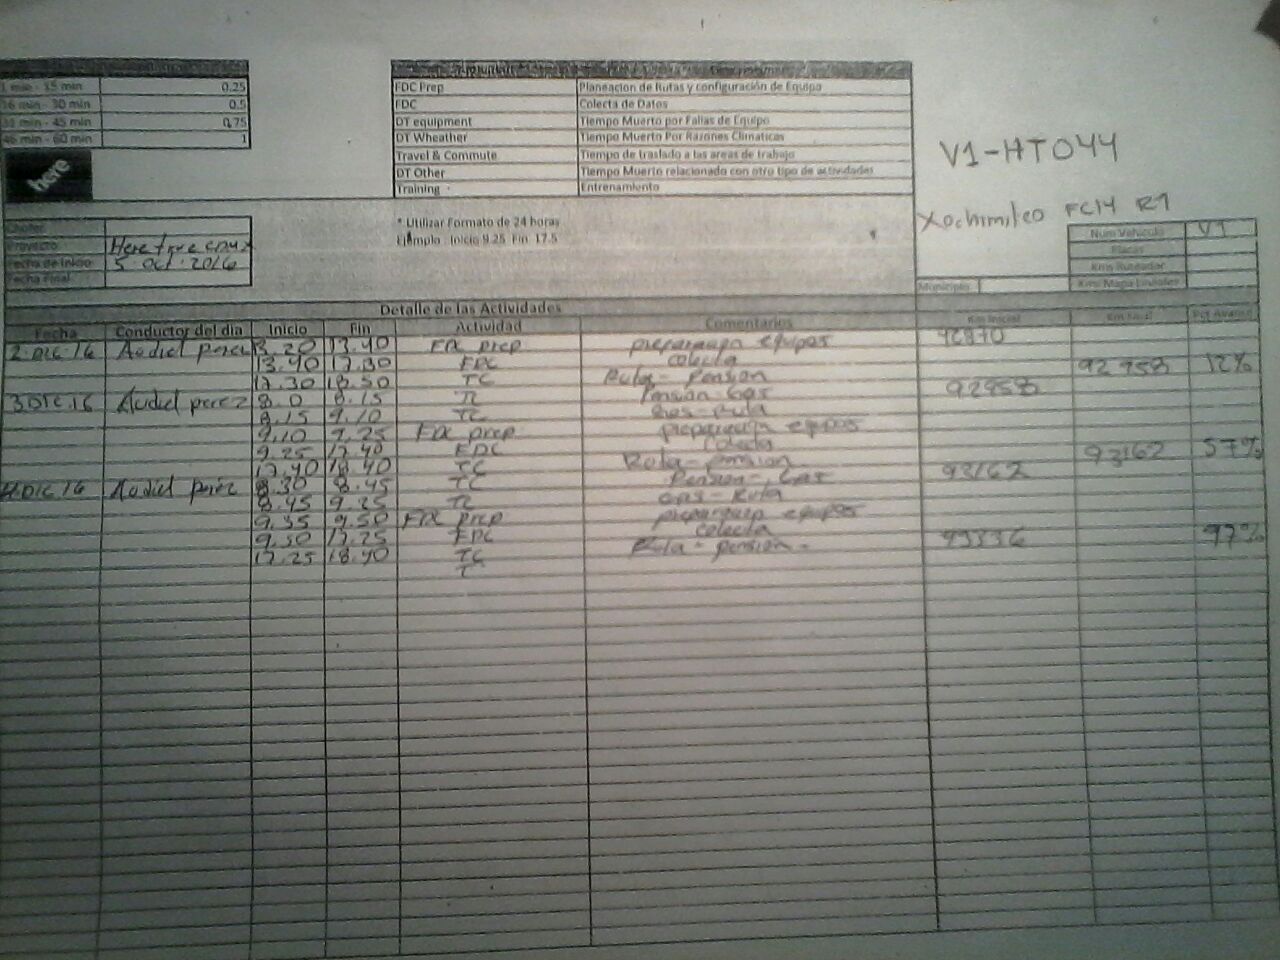 1 min - 15 min 0.25
16 min - 30 min 0.5
31 min - 45 min 0.75
46 min - 60 min 1
FDC Prep Planeacion de Rutas y configuración de Equipo
FDC Colecta de Datos
DT equipment Tiempo Muerto por Fallas de Equipo
DT Wheather Tiempo Muerto Por Razones Climaticas
Travel & Commute Tiempo de traslado a las areas de trabajo
DT Other Tiempo Muerto relacionado con otro tipo de actividades
Training Entrenamiento
here
V1-HT044
Xochimilco FC14 R1
* Utilizar Formato de 24 horas
Ejemplo: Inicio 9.25 Fin 17.5
Chofer
Proyecto Here
Fecha de Inicio 5 Oct 2016
Fecha Final
Num Vehiculo V1
Placas
Kms Ruteador
Municipio Kms Mapa Lineales
Detalle de las Actividades
Fecha Conductor del dia Inicio Fin Actividad Comentarios Km Inicial Km Final Pct Avance
2 Dic 16 Audiel perez 13.40 FDC prep equipos
13.40 17.30 FDC colecta 92958 12%
17.30 18.50 TC Ruta - Pension
3 Dic 16 Audiel perez 8.0 8.15 TC Pension Gas 92958
8.15 9.10 TC Gas - Ruta
9.10 9.25 FDC prep equipos
9.25 17.40 FDC Colecta 93162 57%
17.40 18.40 TC Ruta - pension
Dic 16 Audiel perez 8.30 8.45 TC Pension - Gas 93162
8.45 TC Gas - Ruta
9.35 9.50 FDC prep equipos
9.50 17.25 FDC colecta 97%
17.25 18.40 TC Ruta - pension
T